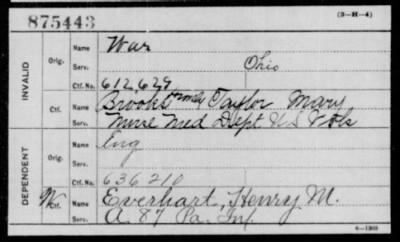 875443
(3-H-4)
INVALID
Orig. Name War
Serv. Ohio
Ctf. No. 612,629
Ctf. Name Brooks formly Taylor Mary
Serv. Nurse Med Dept U S Vols
DEPENDENT
Orig. Name Eng
Serv.
Ctf. No. 636210
W Ctf. Name Everhart, Henry M.
Serv. A. 87 Pa. Inf